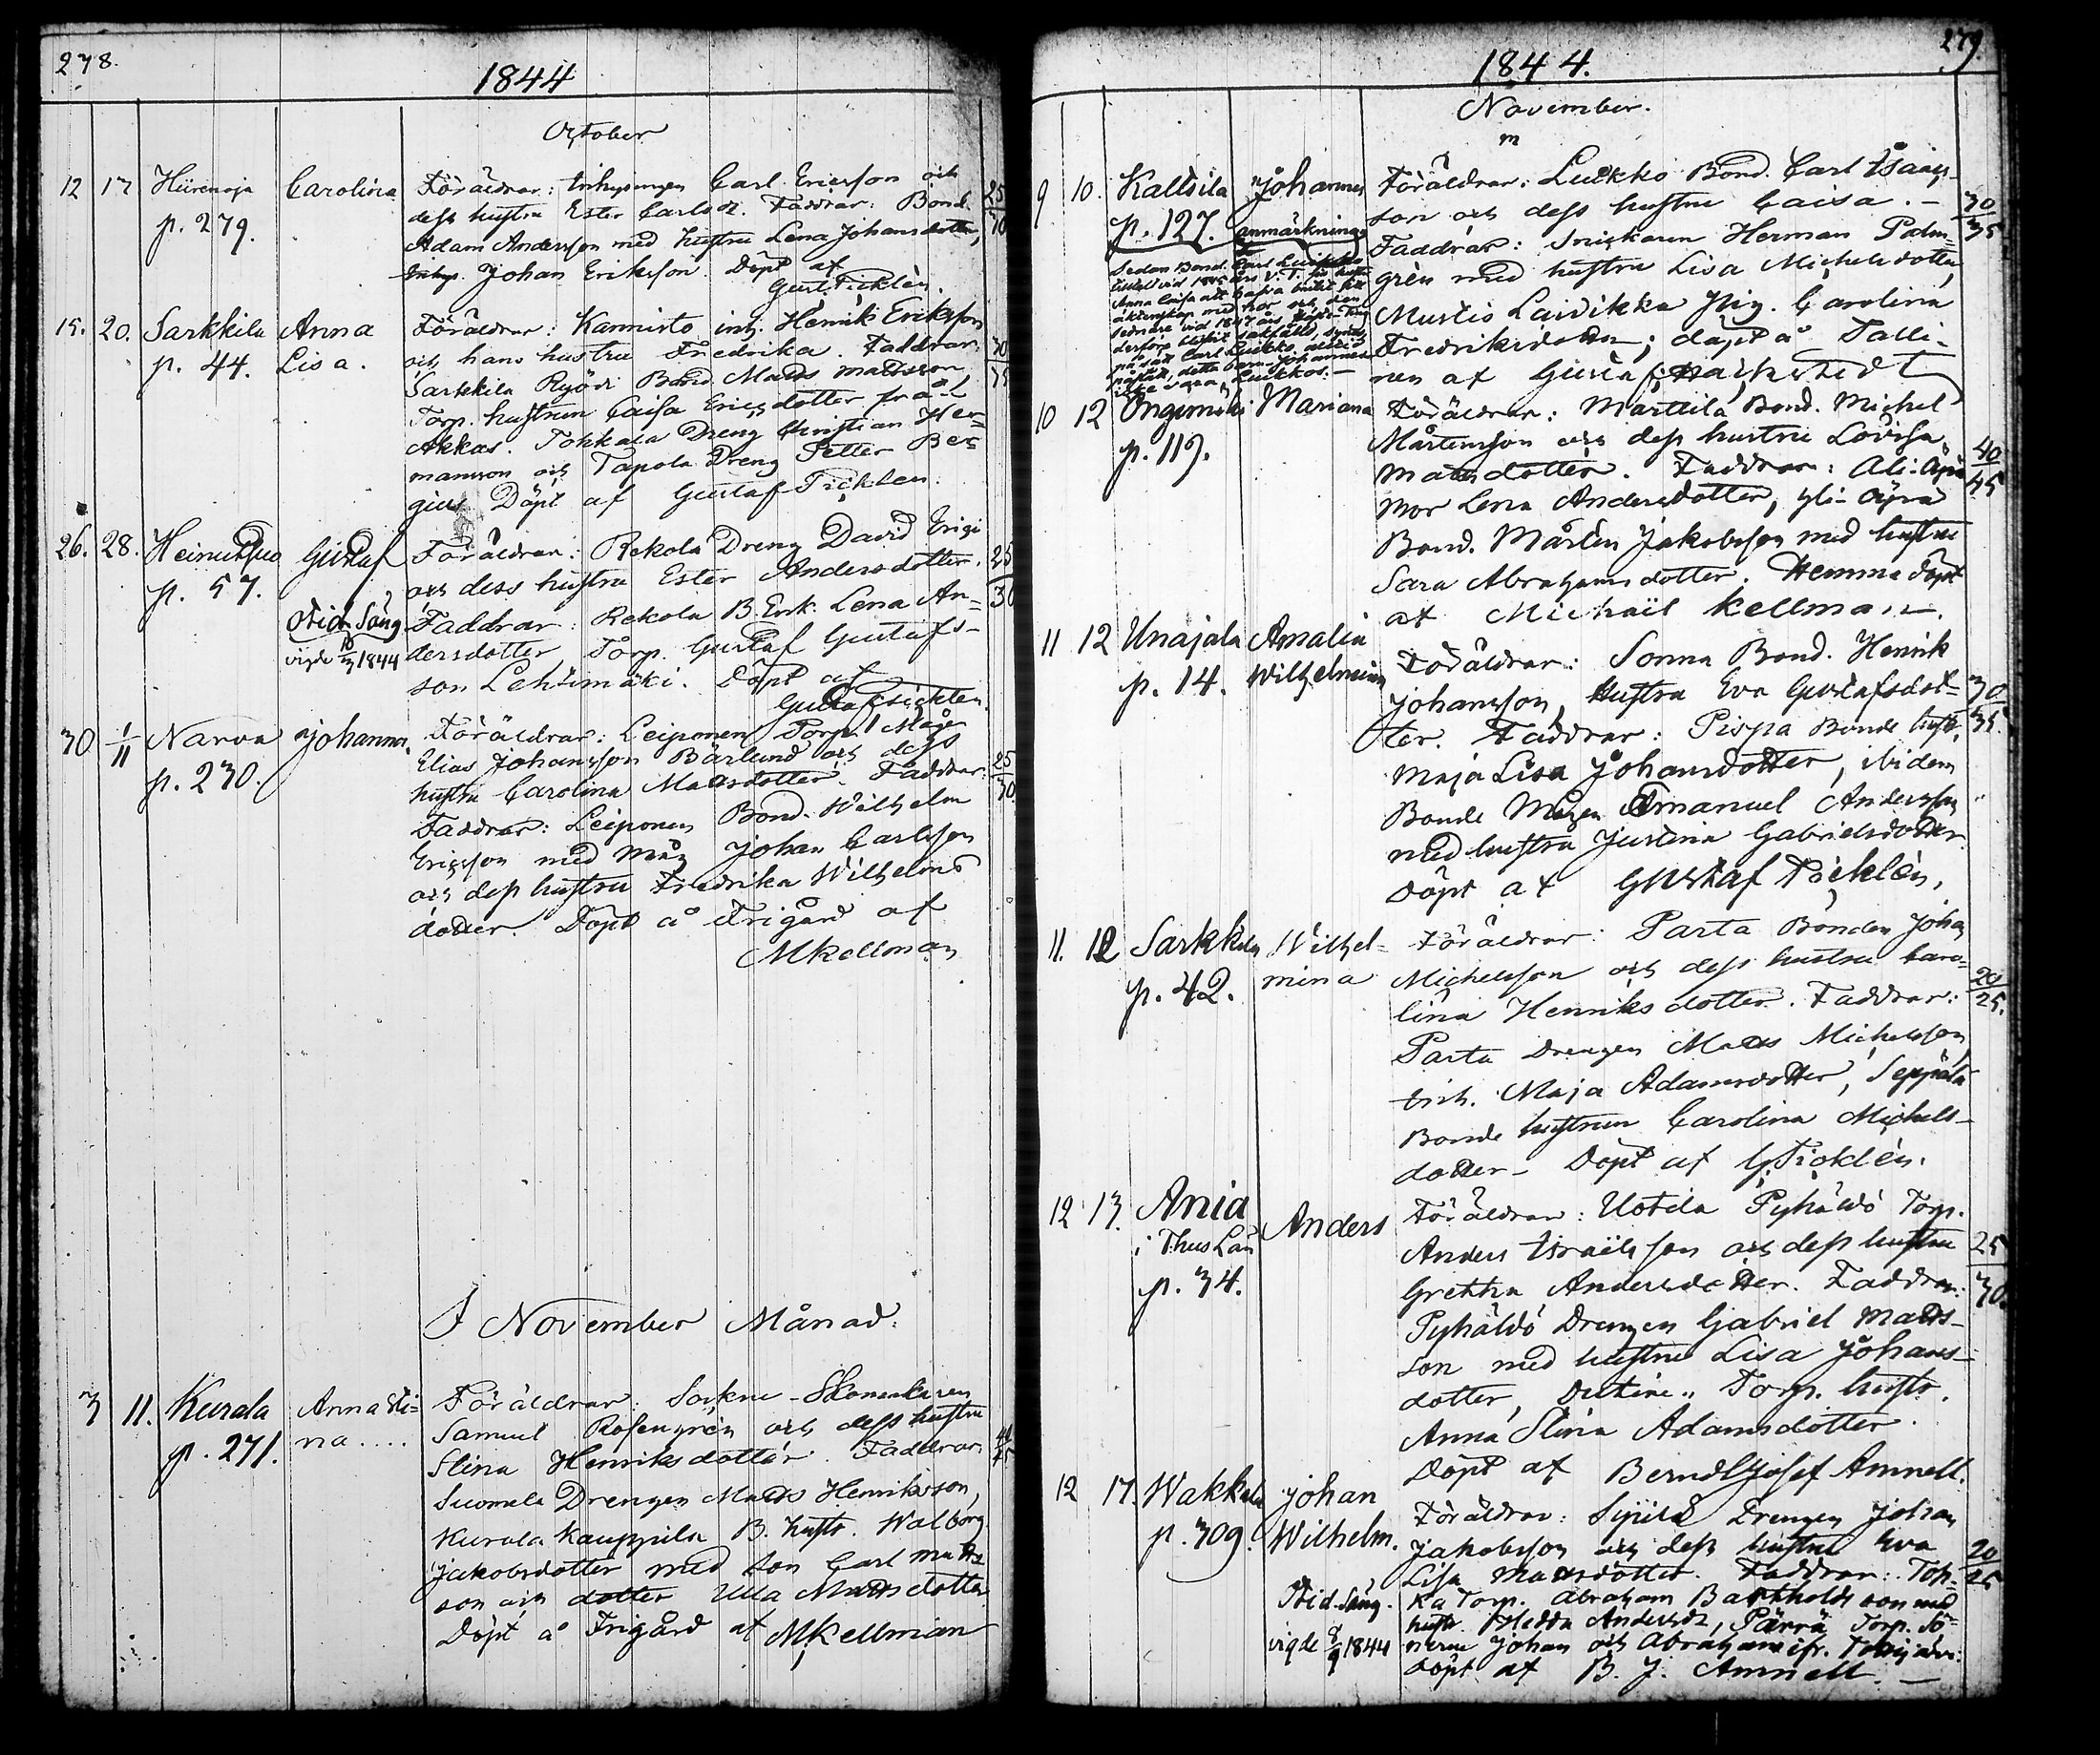 278.
1844
October
12 17 Hiirenoja Carolina Föräldrar: Inhysingen Carl Ericsson och 25
p. 279. dess hustru Ester Carlsdr. Faddrar: Bond. 30
Adam Andersson med hustru Lena Johansdotter,
Inhys. Johan Eriksson. Döpt af
Gust. Ticklén.
15. 20. Sarkkila Anna Föräldrar: Kannisto inh. Henrik Eriksson
p. 44. Lisa. och hans hustru Fredrika. Faddrar: 30
Sarkkila Ryödi Bond. Matts Mattsson 35
Torp. hustrun Caisa Ericsdotter från
Akkas. Tohkala Dreng Christian Her-
mansson och Tapola Dreng Petter Ber-
gius Döpt af Gustaf Ticklen.
26. 28. Heinuksuo Gustaf Föräldrar: Rekola Dreng David Erici 25
p. 57. och dess hustru Ester Andersdotter. 30
Otid. Säng Faddrar: Rekola B. Enk. Lena An-
vigde 10/3 1844 dersdotter Torp. Gustaf Gustafs-
son Lehtimäki. Döpt af
Gustaf Ticklén.
30 1/11 Narva Johannes. Föräldrar: Leiponen Torp. Mågen
p. 230. Elias Johansson Bärlund och dess 25
hustru Carolina Mattsdotter. Faddrar: 30.
Faddrar: Leiponen Bond. Wilhelm
Ericsson med Måg Johan Carlsson
och dess hustru Fredrika Wilhelms
dotter. Döpt å Frigård af
MKellman
I November Månad.
3 11. Kurala Anna Sti- Föräldrar: Sockne-Skomakaren
p. 271. na.... Samuel Rosengrén och dess hustru 40
Stina Henriksdotter. Faddrar: 45
Suomela Drengen Matts Henriksson,
Kurala Kauppila B. hustr. Walborg
Jakobsdotter med son Carl Matts
son och dotter Ulla Mattsdotter.
Döpt å Frigård af MKellman
279.
1844.
November.
9 10. Kaltsila Johannes Föräldrar: Luckko Bond. Carl Isaacs-
p. 127. anmärkning. son och dess hustru Caisa. — 30
Faddrar: Snickaren Herman Palm- 35
Sedan Bond. Carl Luckko
grén med hustru Lisa Michelsdotter,
Mustio Laidikka Pig. Carolina
Fredriksdotter; döpt å Talli-
nen af
10 12 Ongemäki Mariana Föräldrar: Marttila Bond. Michel
p. 119. Mårtensson och dess hustru Lovisa 40
Matsdotter. Faddrar: Ali-Äyrä 45
Mor Lena Andersdotter, Yli-Äyrä
Bond. Mårten Jakobsson med hustru
Sara Abrahamsdotter. Hemma döpt
af Michaël Kellman.
11 12 Unajala Amalia Föräldrar: Sonna Bond. Henrik
p. 14. Wilhelmina Johansson, hustru Eva Gustafsdot- 30
ter. Faddrar: Pispa Bonde hustr. 35.
Maja Lisa Johansdotter, ibidem
Bonde Mågen Emanuel Andersson
med hustru Justina Gabrielsdotter.
Döpt af Gustaf Ticklén,
11. 12 Sarkkila Wilhel- Föräldrar: Parta Bonden Johan
p. 42. mina Michelsson och dess hustru Caro- 20
lina Henriksdotter. Faddrar: 25.
Parta Drengen Matts Michelsson,
Inh. Maja Adamsdotter, Seppälä
Bonde hustrun Carolina Michels-
dotter — Döpt af G. Ticklén.
12 13. Ania Anders Föräldrar: Uotila Pyhältö Torp.
i Thus Län Anders Israelsson och dess hustru 25
p. 34. Gretha Andersdotter. Faddrar: 30.
Pyhältö Drengen Gabriel Matts-
son med hustru Lisa Johans-
dotter, Torp. hustr.
Anna Stina Adamsdotter.
Döpt af Berndt Josef Amnell.
12 17. Wakkala Johan Föräldrar: Sipilä Drengen Johan
p. 309. Wilhelm. Jakobsson och dess hustru Eva 20
Lisa Mattsdotter. Faddrar: Toh- 25
Otid. Säng. ka Torp. Abraham Bartholdsson med
hustr. Hedda Andersdr, Pärrä Torp. Sö-
vigde 8/9 1844 nerne Johan och Abraham ifr.
Döpt af B. J. Amnell. —